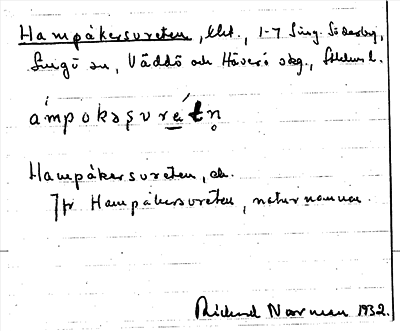 Hampåkersvreten, lht., 1-7 Sing. Söderby,
Singö sn, Väddö och Häverö skg., Sthlms l.
ámpokəșvrétņ
Hampåkersvreten, ek.
Jfr Hampåkersvreten, naturnamnen.
Richard Norman 1932.